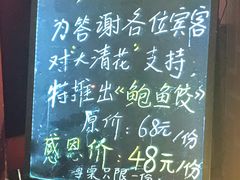 为答谢各位宾客
对“大清花”支持，
特推出《鲍鱼饺》
原价：68元/份
感恩价：48元/份
每桌只限一份